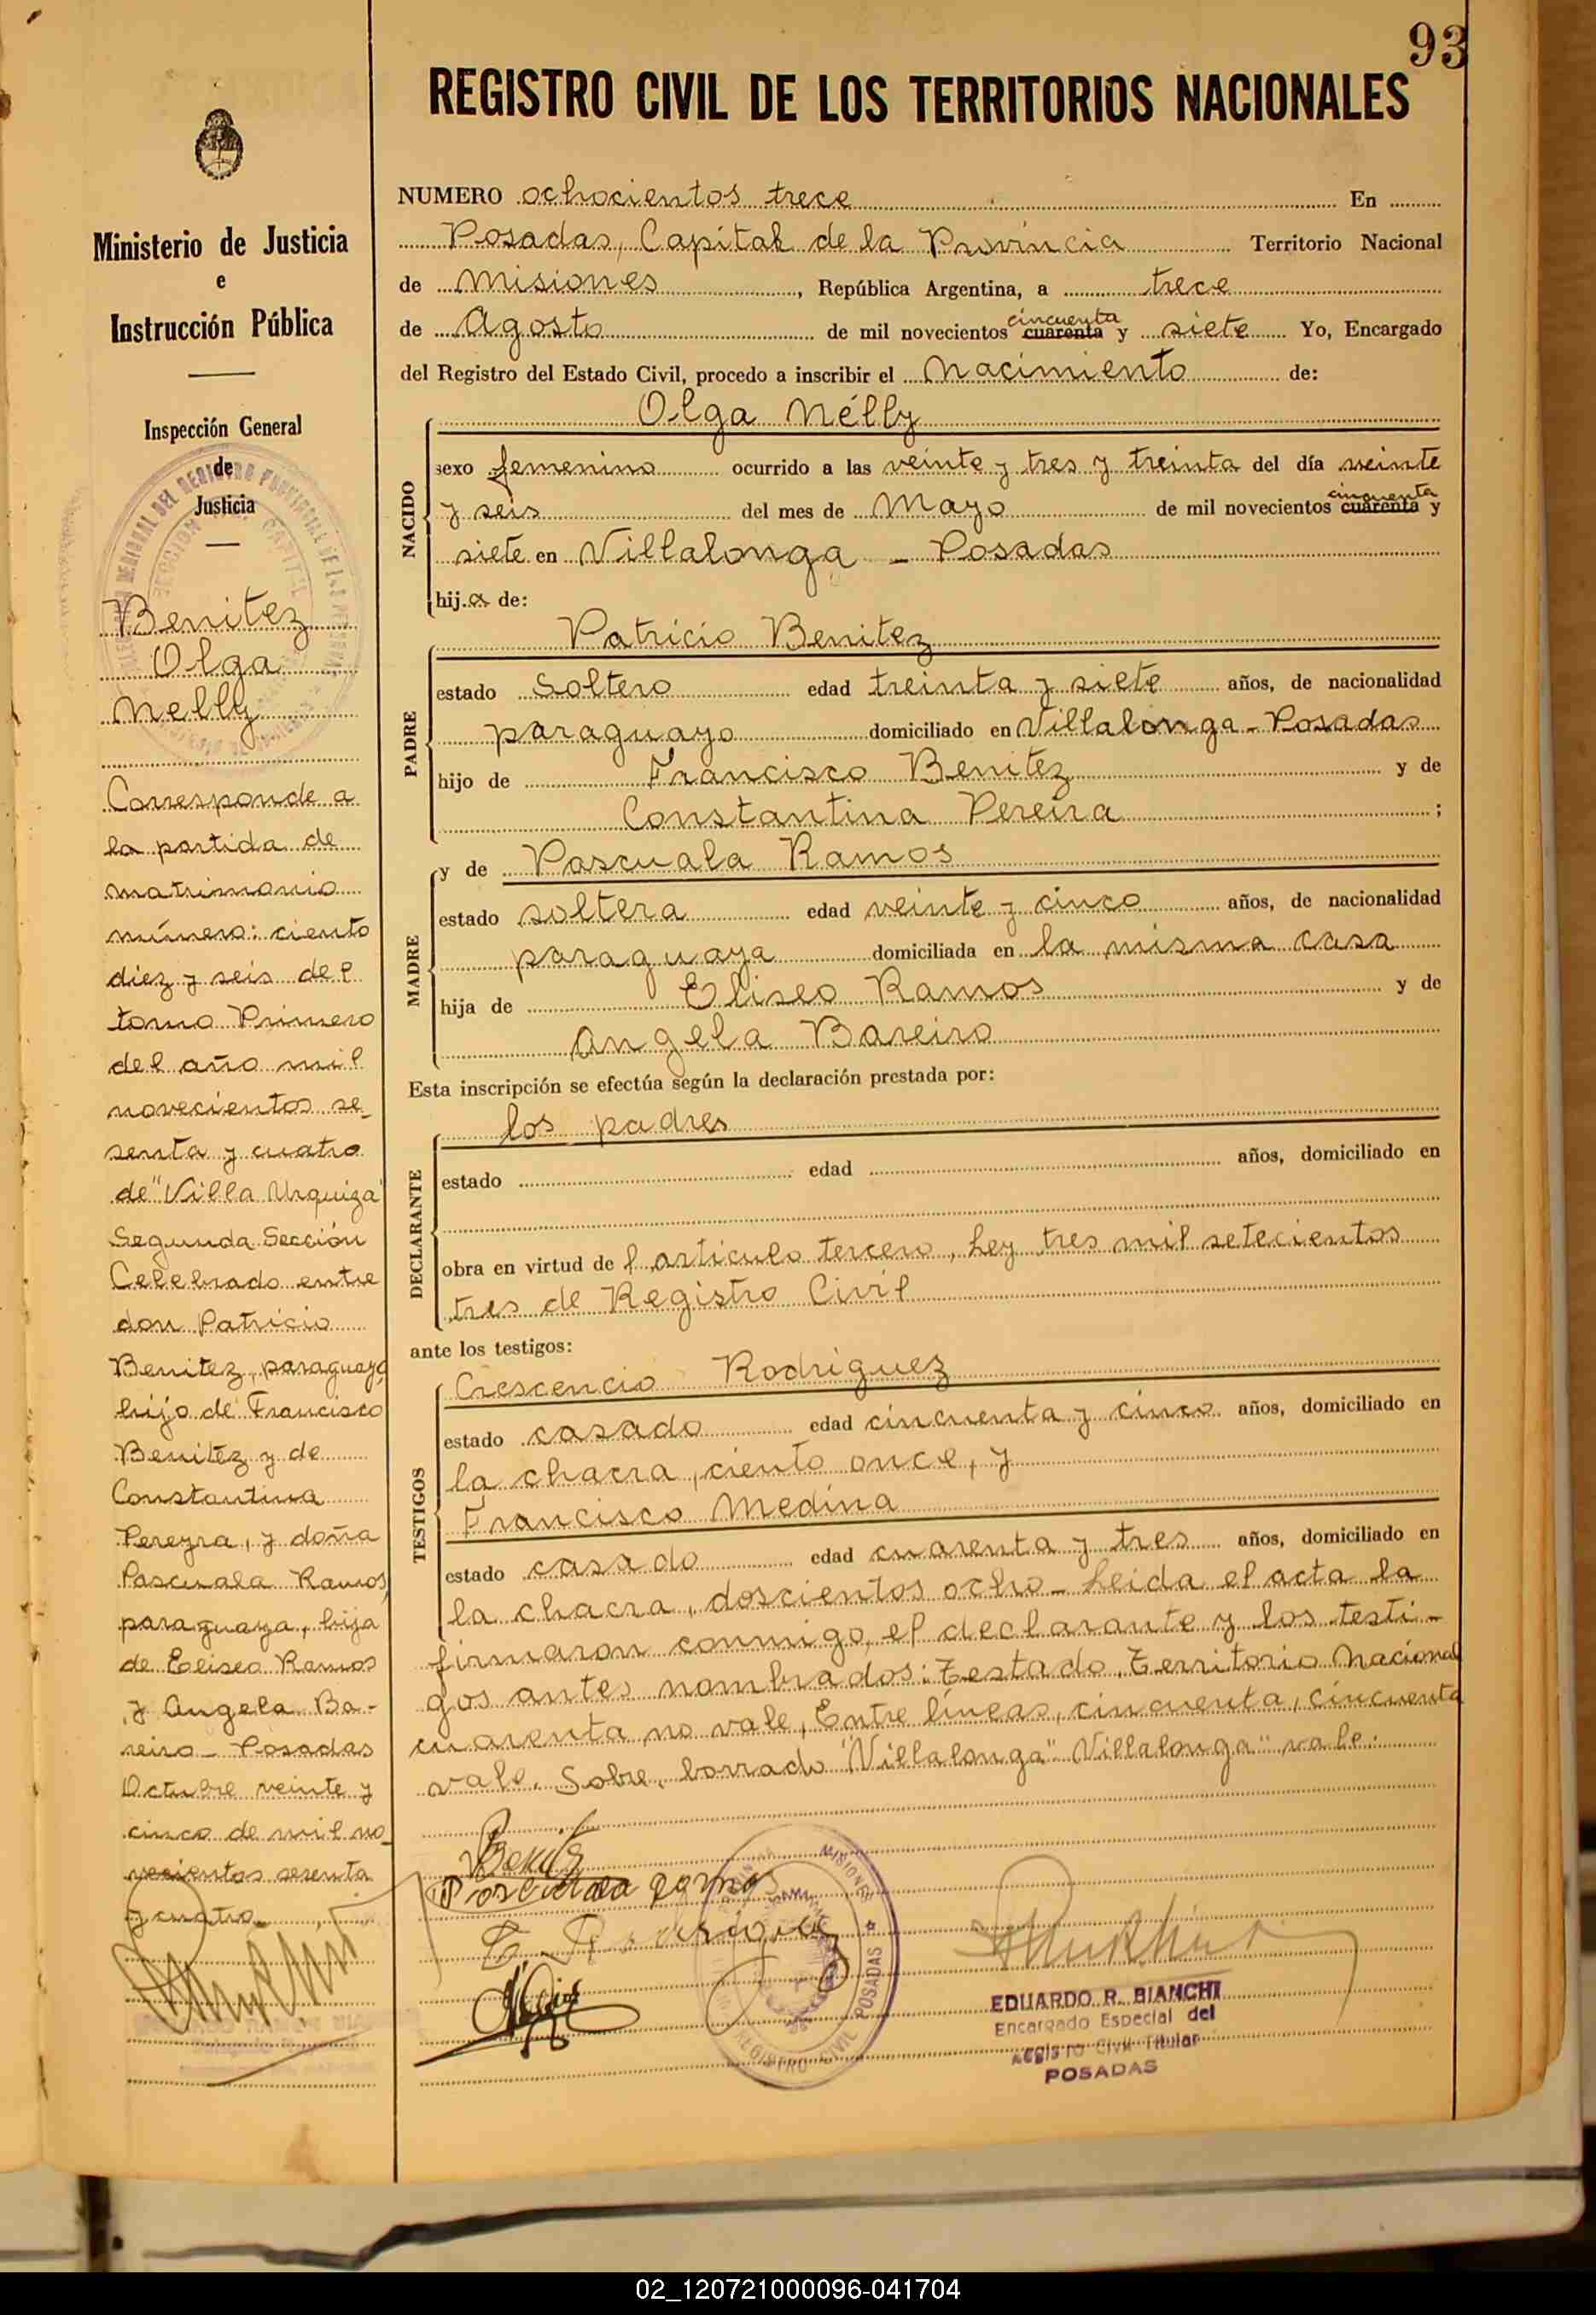 93
REGISTRO CIVIL DE LOS TERRITORIOS NACIONALES
Ministerio de Justicia
e
Instrucción Pública
Inspección General
de
Justicia
Benitez
Olga
Nelly
Corresponde a
la partida de
matrimonio
número: ciento
diez y seis del
tomo Primero
del año mil
novecientos se_
senta y cuatro
de "Villa Urquiza"
Segunda Sección
Celebrado entre
don Patricio
Benitez, paraguayo
hijo de Francisco
Benitez y de
Constantina
Pereyra, y doña
Pascuala Ramos,
paraguaya, hija
de Eliseo Ramos
y Angela Ba-
reiro - Posadas
Octubre veinte y
cinco de mil no_
vecientos sesenta
y cuatro.
NUMERO ochocientos trece En
Posadas, Capital de la Provincia Territorio Nacional
de Misiones, República Argentina, a trece
cincuenta
de Agosto de mil novecientos cuarenta y siete Yo, Encargado
del Registro del Estado Civil, procedo a inscribir el Nacimiento de:
NACIDO
Olga Nélly
sexo femenino ocurrido a las veinte y tres y treinta del día veinte
cincuenta
y seis del mes de Mayo de mil novecientos cuarenta y
siete en Villalonga - Posadas
hija de:
PADRE
Patricio Benitez
estado Soltero edad treinta y siete años, de nacionalidad
paraguayo domiciliado en Villalonga - Posadas
hijo de Francisco Benitez y de
Constantina Pereira ;
MADRE
y de Pascuala Ramos
estado soltera edad veinte y cinco años, de nacionalidad
paraguaya domiciliada en la misma casa
hija de Eliseo Ramos y de
Angela Bareiro
Esta inscripción se efectúa según la declaración prestada por:
DECLARANTE
los padres
estado edad años, domiciliado en
obra en virtud del artículo tercero, ley tres mil setecientos
tres de Registro Civil
ante los testigos:
TESTIGOS
Crescencio Rodriguez
estado casado edad cincuenta y cinco años, domiciliado en
la chacra, ciento once, y
Francisco Medina
estado casado edad cuarenta y tres años, domiciliado en
la chacra, doscientos ocho - Leida el acta la
firmaron conmigo, el declarante y los testi-
gos antes nombrados: Testado, Territorio Nacional
cuarenta no vale, Entre líneas, cincuenta, cincuenta
vale. Sobre, borrado "Villalonga" Villalonga" vale.
Benitez
Pascuala Ramos
MISIONES
POSADAS
REGISTRO CIVIL
EDUARDO R. BIANCHI
Encargado Especial del
Registro Civil Titular
POSADAS
02_120721000096-041704